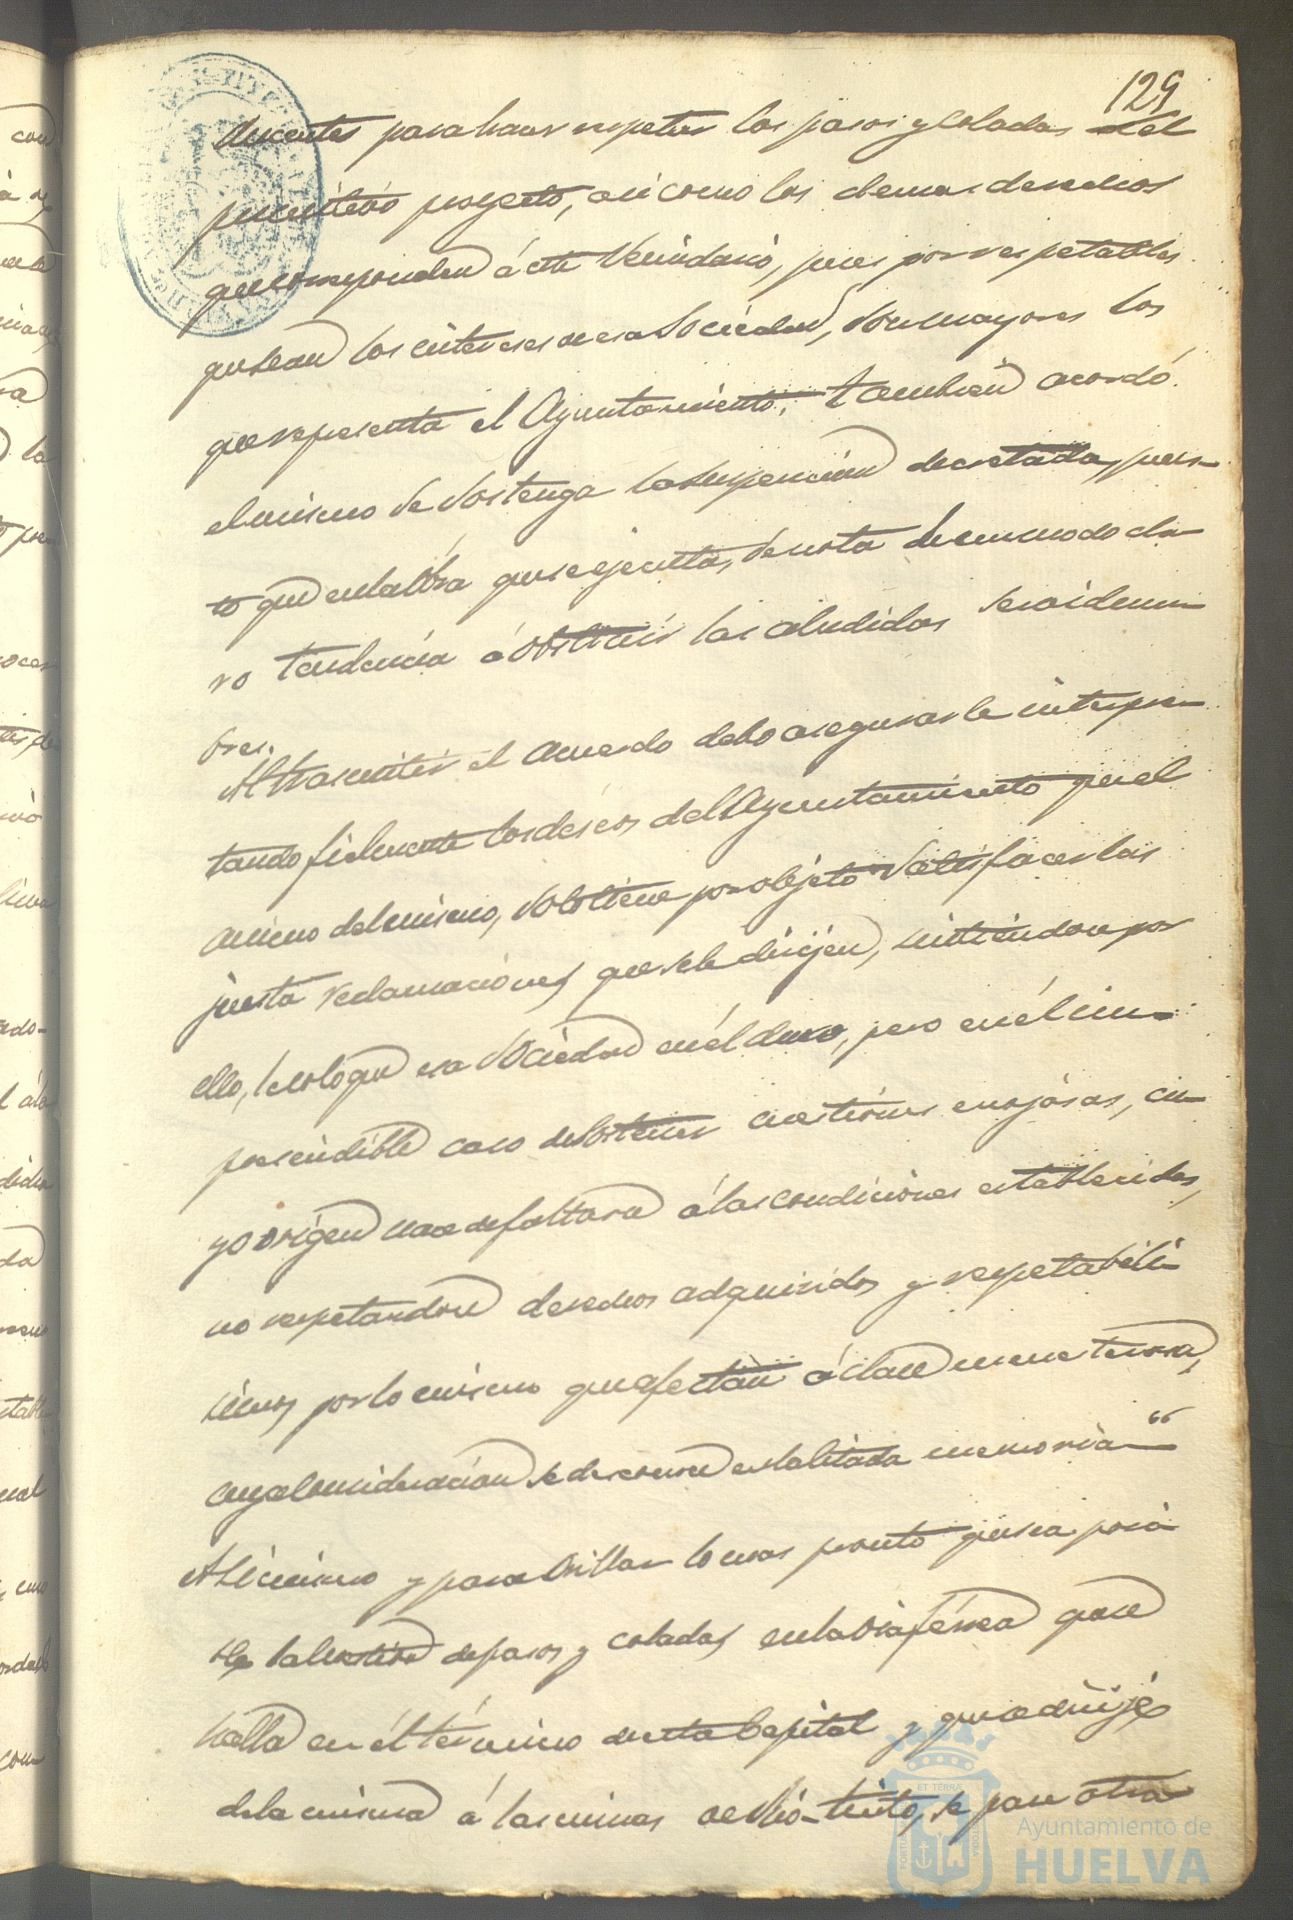 129
ducentes para hacer respetar los pasos y coladas del
primitivo proyecto, asi como los demas derechos
que corresponden á este Vecindario, pues por respetables
que sean los intereses de esa Sociedad, son mayores los
que representa el Ayuntamiento; tambien acordó
el mismo se sostenga la suspension decretada, pues-
to que en la obra que se ejecuta, se nota de un modo cla-
ro tendencia á obstruir las aludidas servidum-
bres.
Al trasmitir el acuerdo debo asegurarle interpre-
tando fielmente los deseos del Ayuntamiento que el
animo del mismo, solo tiene por objeto satisfacer las
justa reclamaciones que se le dirijen, sintiendose por
ello, se coloque esa Sociedad en el duro, pero en él im-
prescindible caso de sostener cuestiones enojosas, cu-
yo origen nace de faltarse á las condiciones establecidas,
no respetandose derechos adquiridos y respetabili-
simos por lo mismo que afectan á clase menesterosa,
cuya consideracion se desconoce en la citada memoria"
Asimismo y para orillar lo mas pronto que sea posi-
ble la cuestion de pasos y coladas en la via férrea que se
halla en él término de esta Capital y que se dirije
de la misma á las minas de Rio-tinto, se pase otra
ET TERRÆ
PORTUS
CUSTODIA
Ayuntamiento de
HUELVA